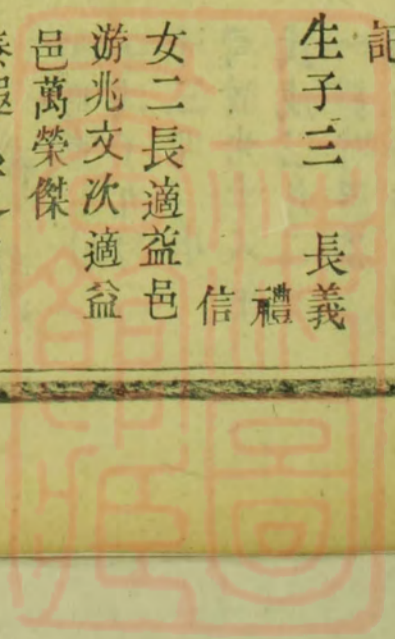 記
生子三 長義
禮
信
女二長適益邑
游兆文次適益
邑萬榮傑